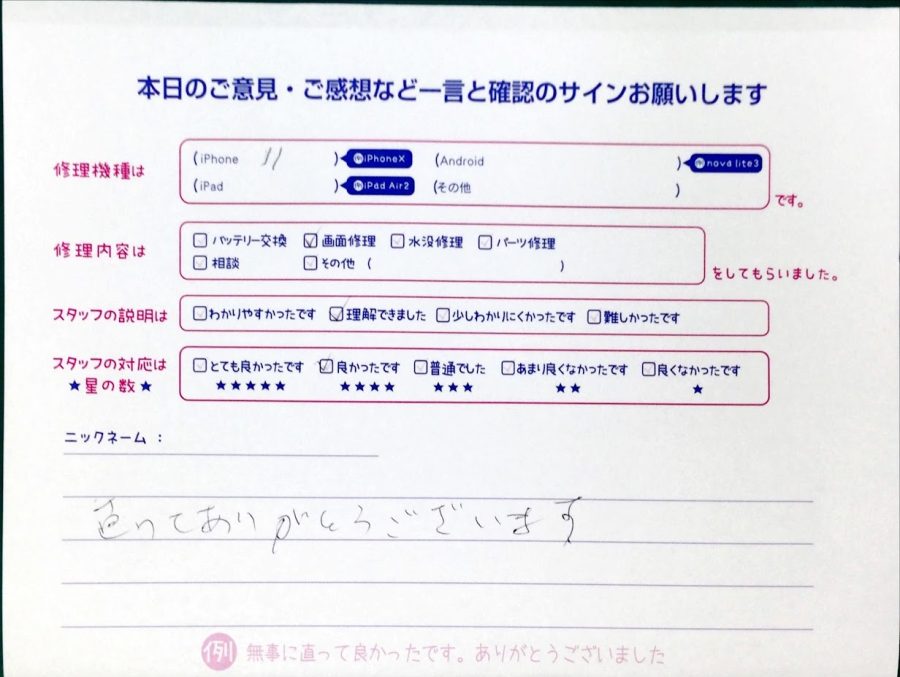 本日のご意見・ご感想など一言と確認のサインお願いします
修理機種は
(iPhone 11 ) 例iPhoneX (Android ) 例nova lite3
(iPad ) 例iPad Air2 (その他 ) です。
修理内容は
バッテリー交換 画面修理 水没修理 パーツ修理
相談 その他 ( ) をしてもらいました。
スタッフの説明は
わかりやすかったです 理解できました 少しわかりにくかったです 難しかったです
スタッフの対応は
★星の数★
とても良かったです 良かったです 普通でした あまり良くなかったです 良くなかったです
★★★★★ ★★★★ ★★★ ★★ ★
ニックネーム：
直ってありがとうございます
例 無事に直って良かったです。ありがとうございました